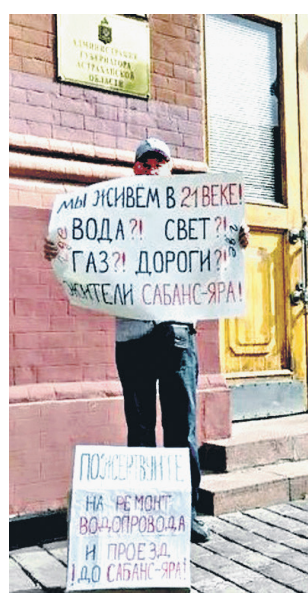 АДМИНИСТРАЦИЯ
ГУБЕРНАТОРА
АСТРАХАНСКОЙ
ОБЛАСТИ
МЫ ЖИВЁМ В 21 ВЕКЕ!
ГДЕ ВОДА?! СВЕТ?! ГДЕ
ГАЗ?! ДОРОГИ?!
ЖИТЕЛИ САБАНС-ЯРА!
ПОЖЕРТВУЙТЕ
НА РЕМОНТ
ВОДОПРОВОДА
И ПРОЕЗД
! ДО САБАНС-ЯРА!